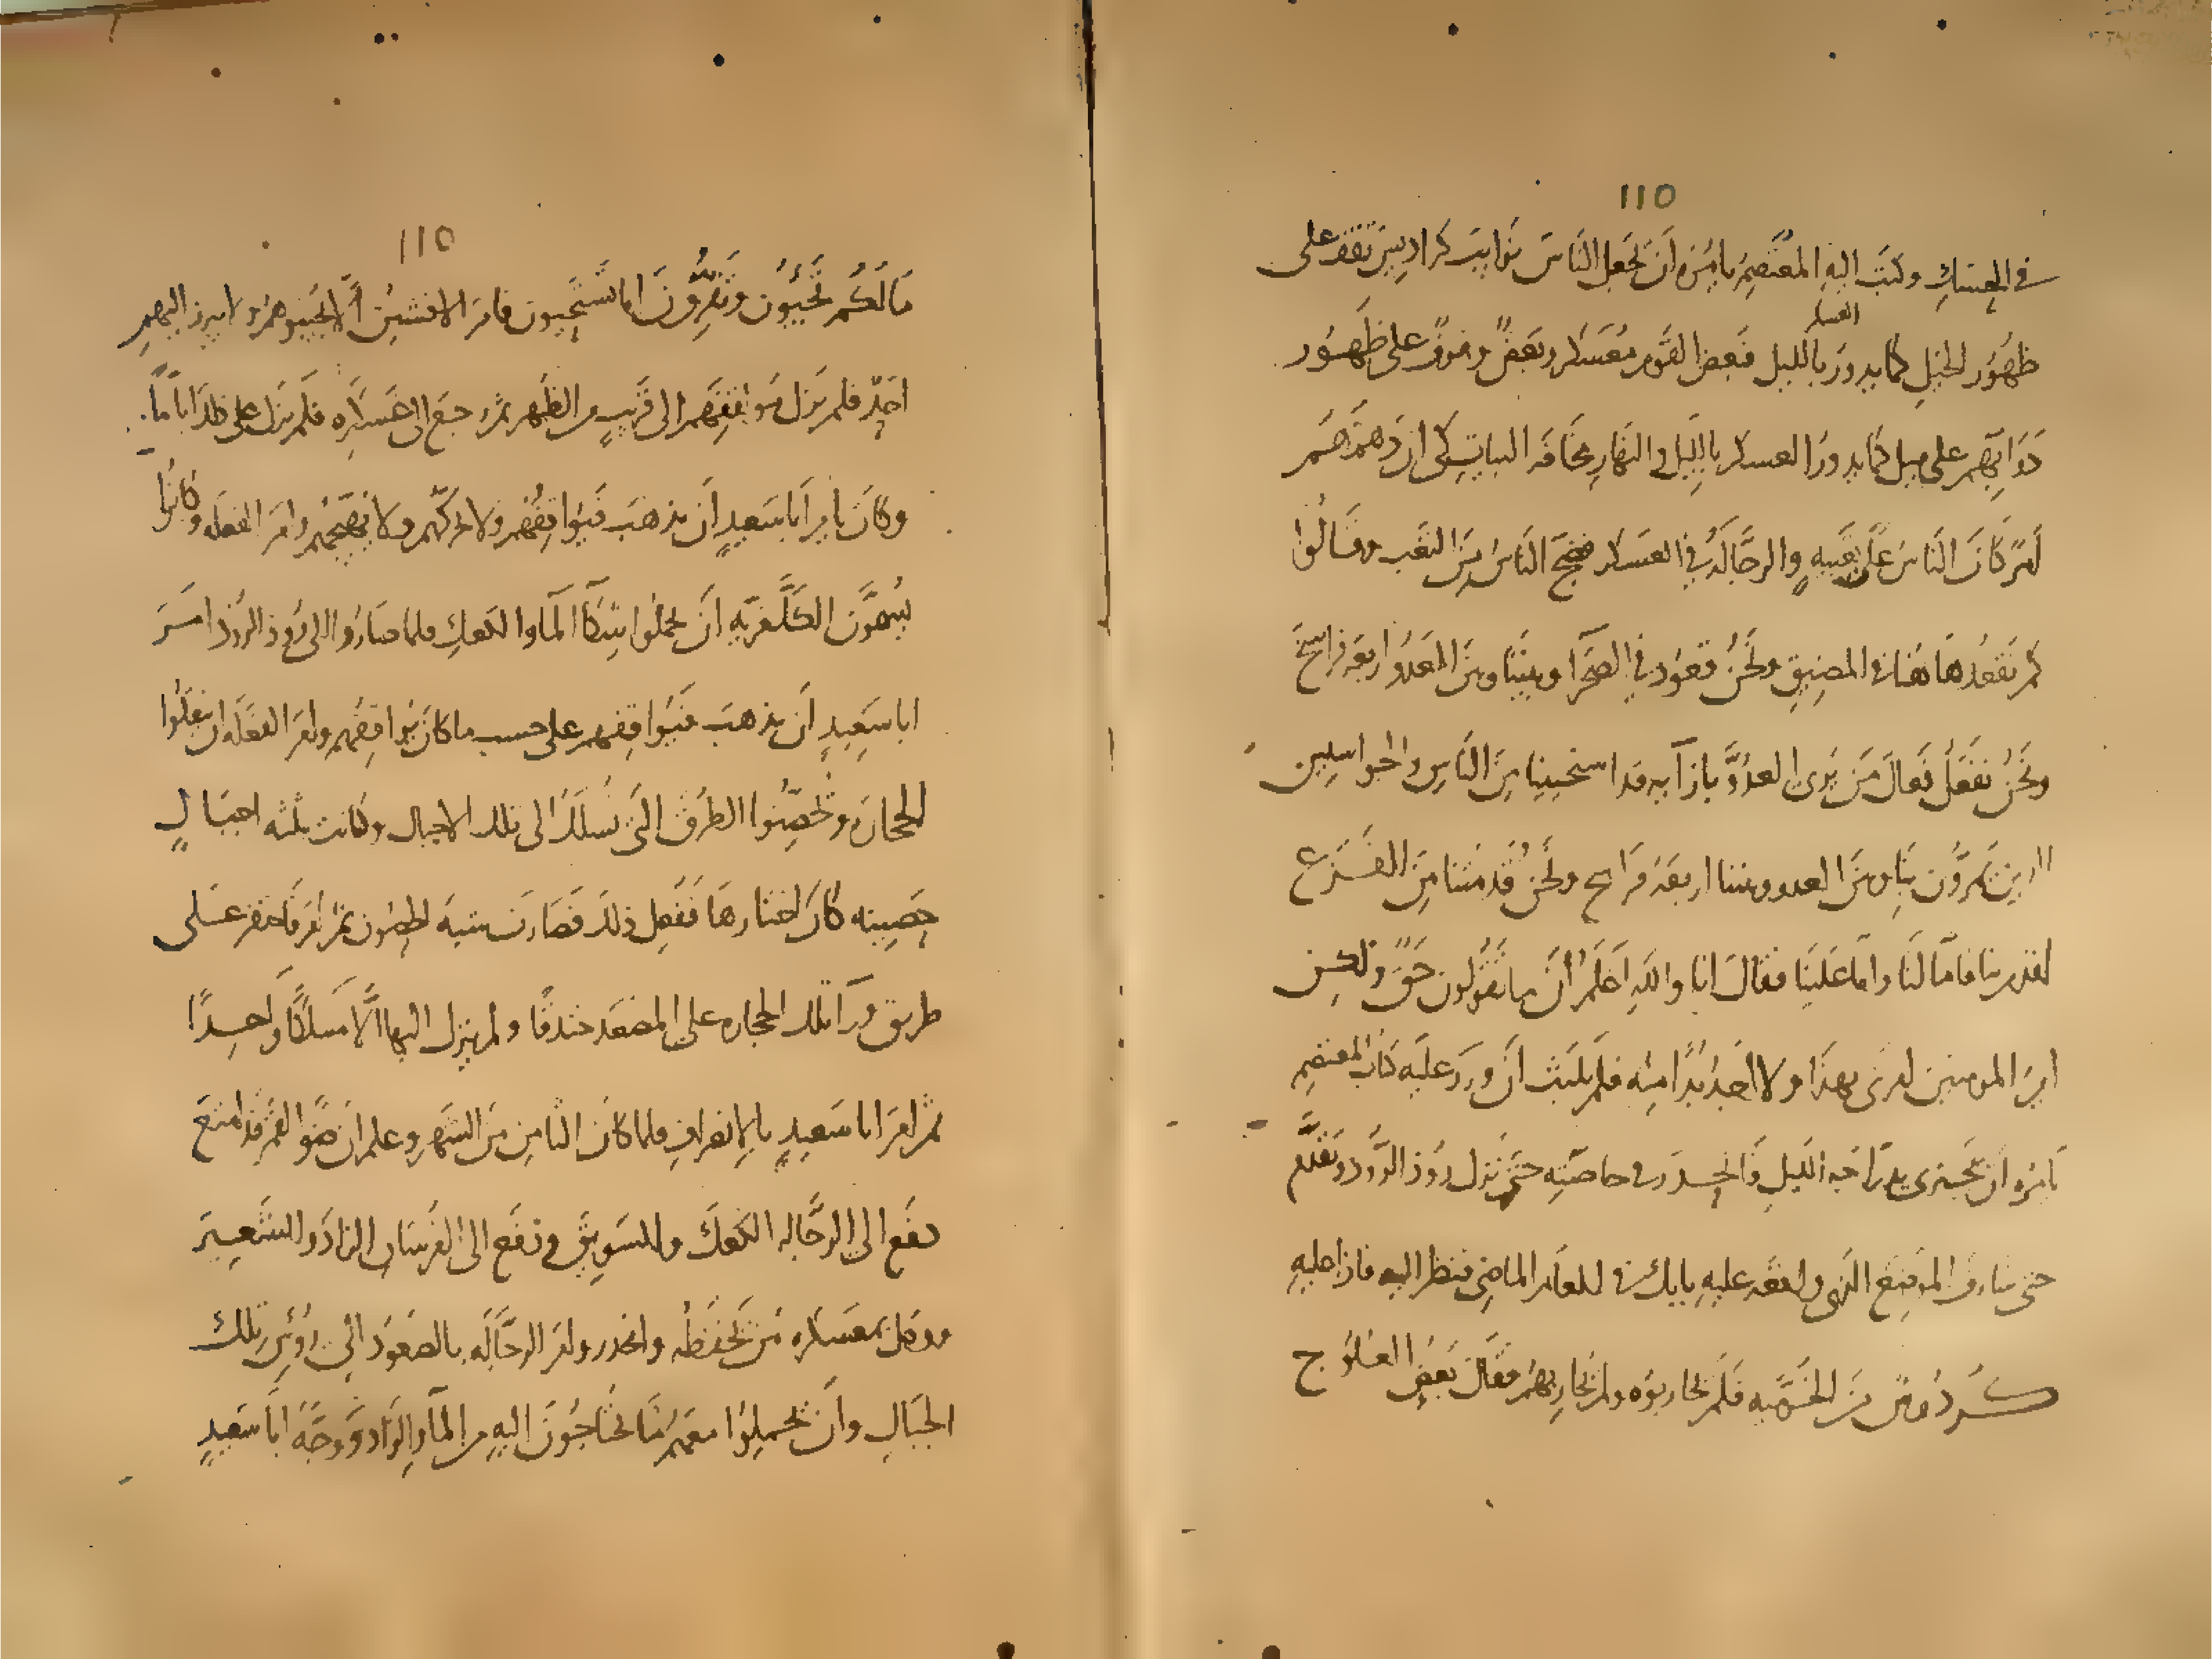 110
في المسالك وكتب اليه المعتصم يامره ان تجعل الناس نوايب كراديس تقف على
ظهور الخيل كما يدور العسكر بالليل فبعض القوم معسكر وبعض وقوف على ظهور
دوابهم على ميل كما يدور العسكر بالليل والنهار مخافة البيات كي ان دهمهم
امر كان الناس على تعبيه والرجالة في العسكر فضج الناس من التعب وقالوا
كم نقعد هاهنا في المضيق ونحن قعود في الصحرا وبيننا وبين العدو اربعة فراسخ
ونحن نفعل فعال من يرى العدو بازآيه قد استحيينا من الناس والجواسيس
الذين يمرون بنا وبين العدو وبيننا اربعة فراسخ ونحن قد متنا من الفزع
اقدم بنا فاما لنا واما علينا فقال انا والله اعلم ان ما تقولون حق ولكن
امير المومنين امرني بهذا ولا اجد بدا منه فلم يلبث ان ورد عليه كتاب المعتصم
يامره ان يتحرى بدراجة الليل فانحدر في خاصته حتى نزل روذ الروذ وتقدم
حتى شارف الموضع الذي واقفه عليه بابك في العام الماضي فنظر اليه فاذا عليه
كردوس من الخرمية فلم يحاربوه ولم يحاربهم فقال بعض العلوج
110
ما لكم تجيون وتفرون اما تستحيون فامر الافشين الا يجيبوهم ولا يبرز اليهم
احد فلم يزل مواقفهم الى قريب من الظهر ثم رجع الى عسكره فلم يزل على هذا اياما
وكان يامر ابا سعيد ان يذهب فيواقفهم ولا يحركهم ولا يهيجهم وامر الفعله وكانوا
يسمون الكلغرية ان يحملوا شكآ المآ والكعك فلما صاروا الى روذ الروذ امر
ابا سعيد ان يذهب فيواقفهم على حسب ما كان يواقفهم وامر الفعله ان ينقلوا
الحجارة ويحصنوا الطرق التي تسلك الى تلك الاجبال وكانت ثلثه اجبال
حصينه كان اختارها ففعل ذلك فصارت شبه الحصون ثم امر فاحتفر على
طريق ورآ تلك الحجاره على المصعد خندقا ولم يترك اليها الا مسلكا واحدا
ثم امر ابا سعيد بالانصراف فلما كان الثامن من الشهر وعلم ان ضو القمر قد امتنع
دفع الى الرجاله الكعك والسويق ودفع الى الفرسان الزاد والشعير
ووكل بمعسكره من يحفظه وانحدر وامر الرجاله بالصعود الى روس تلك
الجبال وان يحملوا معهم ما يحتاجون اليه من المآ والزاد ووجه ابا سعيد